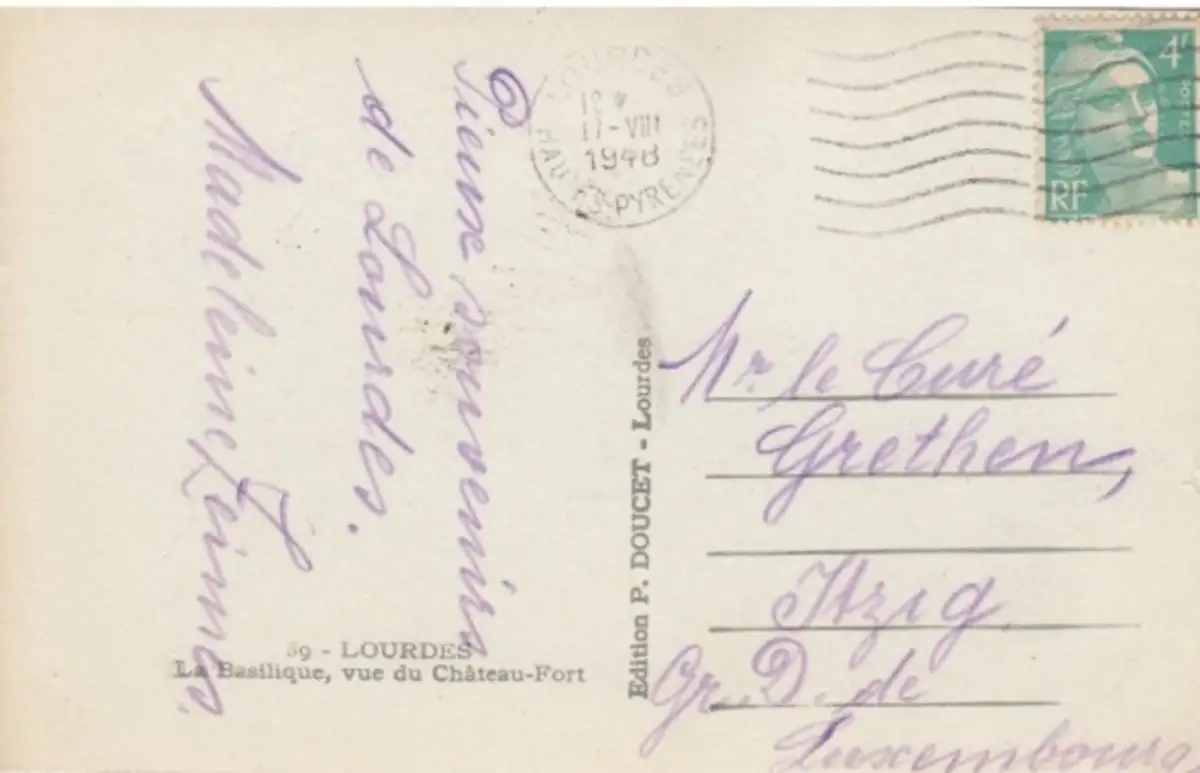 Pieux souvenirs
de Lourdes.
Madeleine Zeimes.
39 - LOURDES
La Basilique, vue du Château-Fort
Edition P. DOUCET - Lourdes
LOURDES
17-VIII
1948
HAUTES-PYRENEES
4f
RF
Mr le Curé
Grethen,
Itzig
Gr. D. de
Luxembourg